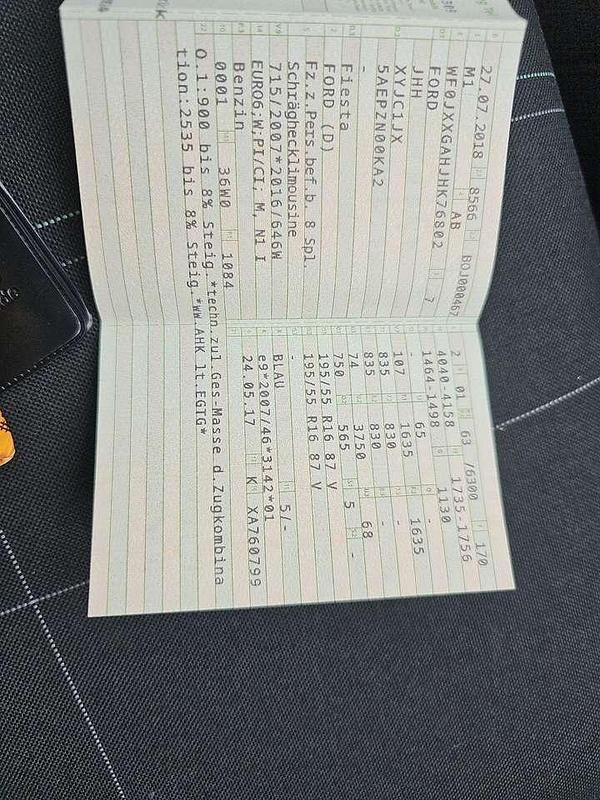 27.07.2018 8566 BOJ000467
M1 AB
WF0JXXGAHJHK76802 7
FORD
JHH
XYJC1JX
5AEPZN00KA2
-
Fiesta
FORD (D)
Fz.z.Pers.bef.b. 8 Spl.
Schräghecklimousine
715/2007*2016/646W
EURO6;W;PI/CI; M, N1 I
Benzin
0001 36W0 1084
2 01 63 /6300 170
4040-4158 1735-1756
1464-1498 1130
- 65 -
107 1635 1635
835 830 -
835 830 -
74 3750 68
750 565 5 -
195/55 R16 87 V
195/55 R16 87 V
-
BLAU 5/-
e9*2007/46*3142*01
24.05.17 K XA760799
O.1:900 bis 8% Steig.*techn.zul.Ges-Masse d.Zugkombina
tion:2535 bis 8% Steig.*ww.AHK lt.EGTG*